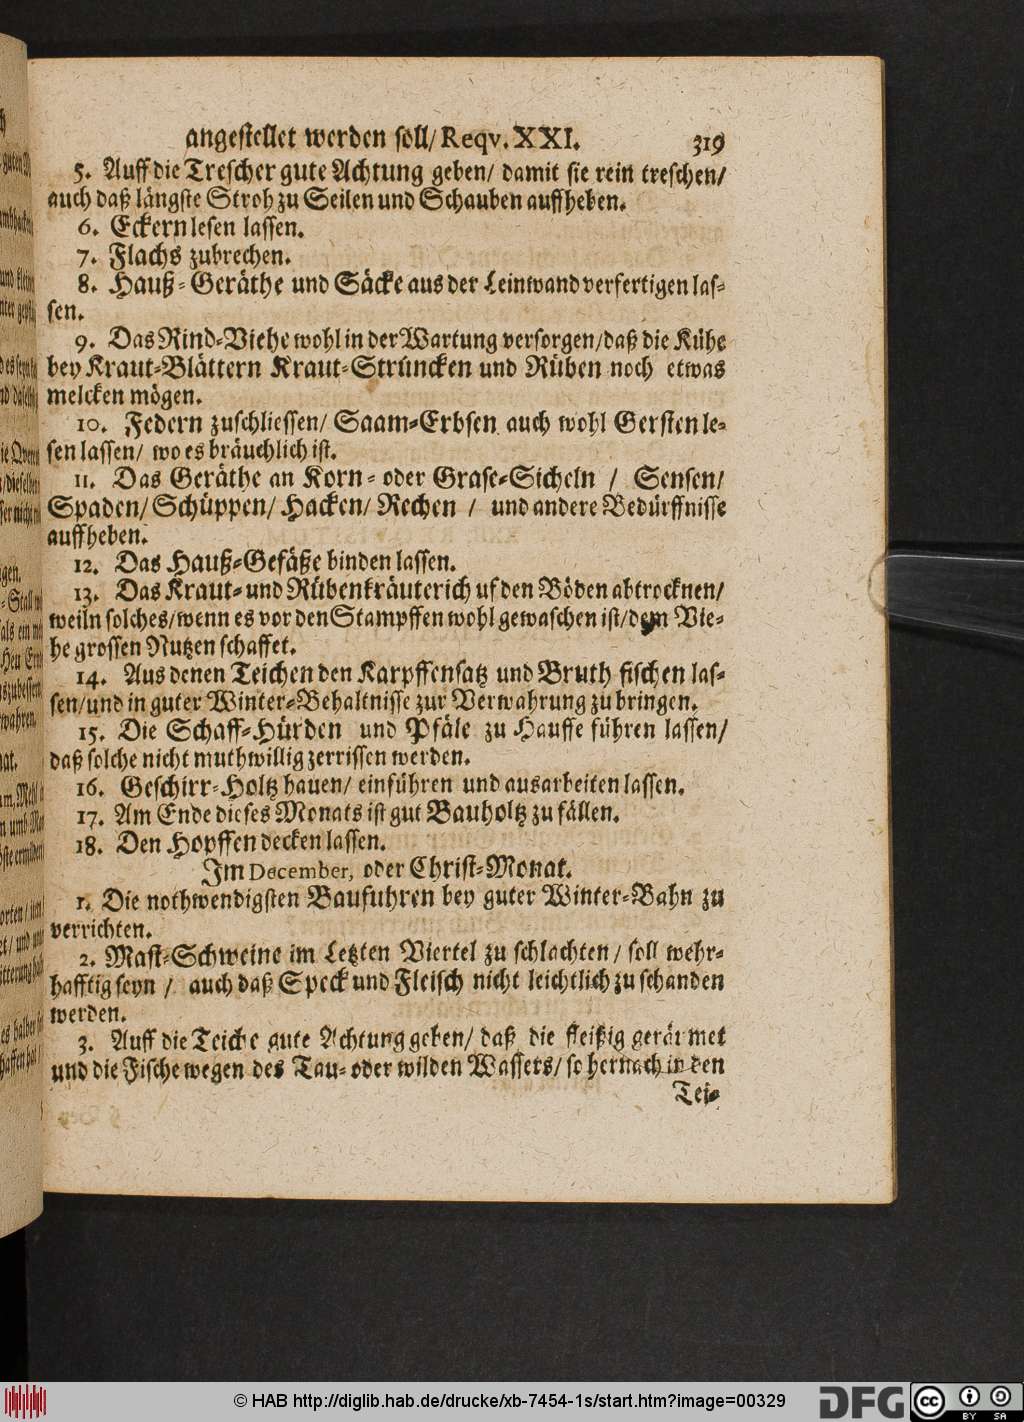 angestellet werden soll/ Reqv. XXI. 319
5. Auff die Trescher gute Achtung geben/ damit sie rein treschen/
auch daß längste Stroh zu Seilen und Schauben auffheben.
6. Eckern lesen lassen.
7. Flachs zubrechen.
8. Hauß-Geräthe und Säcke aus der Leinwand verfertigen las-
sen.
9. Das Rind-Viehe wohl in der Wartung versorgen/ daß die Kühe
bey Kraut-Blättern Kraut-Strüncken und Rüben noch etwas
melcken mögen.
10. Federn zuschliessen/ Saam-Erbsen auch wohl Gersten le-
sen lassen/ wo es bräuchlich ist.
11. Das Geräthe an Korn- oder Grase-Sicheln / Sensen/
Spaden/ Schüppen/ Hacken/ Rechen / und andere Bedürffnisse
auffheben.
12. Das Hauß-Gefäße binden lassen.
13. Das Kraut- und Rübenkräuterich uf den Böden abtrocknen/
weiln solches/ wenn es vor den Stampffen wohl gewaschen ist/ dem Vie-
he grossen Nutzen schaffet.
14. Aus denen Teichen den Karpffensatz und Bruth fischen las-
sen/ und in guter Winter-Behaltnisse zur Verwahrung zu bringen.
15. Die Schaff-Hürden und Pfäle zu Hauffe führen lassen/
daß solche nicht muthwillig zerrissen werden.
16. Geschirr-Holtz hauen/ einführen und ausarbeiten lassen.
17. Am Ende dieses Monats ist gut Bauholtz zu fällen.
18. Den Hopffen decken lassen.
Im December, oder Christ-Monat.
1. Die nothwendigsten Baufuhren bey guter Winter-Bahn zu
verrichten.
2. Mast-Schweine im Letzten Viertel zu schlachten / soll wehr-
hafftig seyn / auch daß Speck und Fleisch nicht leichtlich zu schanden
werden.
3. Auff die Teiche gute Achtung geben/ daß die fleißig geräumet
und die Fische wegen des Tau- oder wilden Wassers/ so hernach in den
Tei-
© HAB http://diglib.hab.de/drucke/xb-7454-1s/start.htm?image=00329
DFG
cc BY SA